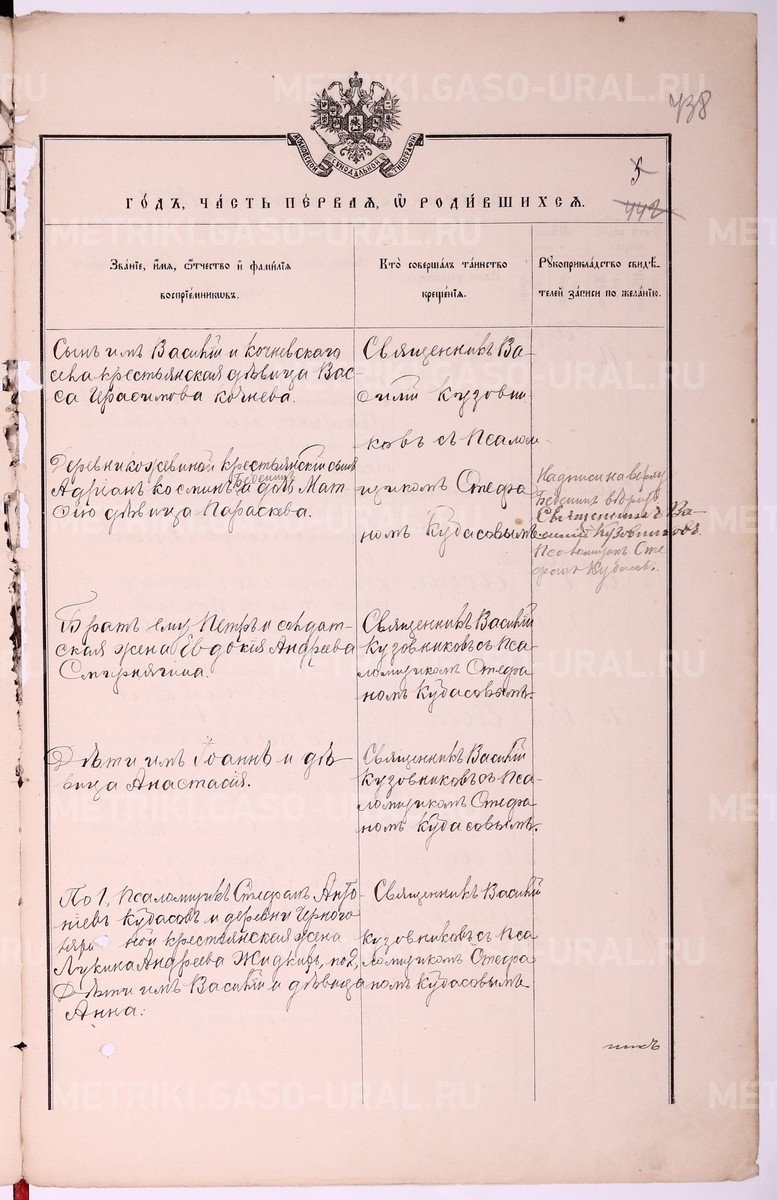 METRIKI.GASO-URAL.RU
738
МОСКОВСКОЙ СѴНОДАЛЬНОЙ ТИПОГРАФІИ
5
442
ГО́ДЪ, ЧА́СТЬ ПЕ́РВАЯ, Ѡ҆ РОДИ́ВШИХСЯ.
Зва́нїе, и҆́мя, ѻ҆́тчество и҆ фами́лїя
воспрїе́мниковъ.
Кто̀ соверша́лъ та́инство
креще́нїя.
Рꙋкоприкла́дство свидѣ́-
телей за́писи по жела́нїю.
Сынъ имъ Василій и Кочневскаго
села крестьянская дѣвица Вас-
са Герасимова Кочнева.
Священникъ Ва-
силій Кузовни-
ковъ съ Псалом
щикомъ Стефа
номъ Кубасовымъ
Деревни Кожевиной крестьянскій сынъ
Адріанъ Косминъ Бебенинъ и дѣв Мат-
ѳіо дѣвица Параскева.
Надписи на верху
Бебенинъ вѣрою
Священникъ Ва-
силій Кузовниковъ
Псаломщикъ Сте
фанъ Кубасовъ.
Братъ ему Петръ и солдат-
ская жена Евдокія Андреева
Смирнягина.
Священникъ Василій
Кузовниковъ съ Пса-
ломщикомъ Стефа
номъ Кубасовымъ.
Дѣти имъ Іоаннъ и дѣ-
вица Анастасія.
Священникъ Василій
Кузовниковъ съ Пса-
ломщикомъ Стефа
номъ Кубасовымъ.
По 1, Псаломщикъ Стефанъ Анто
ніевъ Кубасовъ и деревни Черного
ной крестьянская жена
Лукина Андреева Жидкихъ, по 2,
Дѣти имъ Василій и дѣвица
Анна.
Священникъ Василій
Кузовниковъ съ Пса
ломщикомъ Стефа
номъ Кубасовымъ
никъ
METRIKI.GASO-URAL.RU